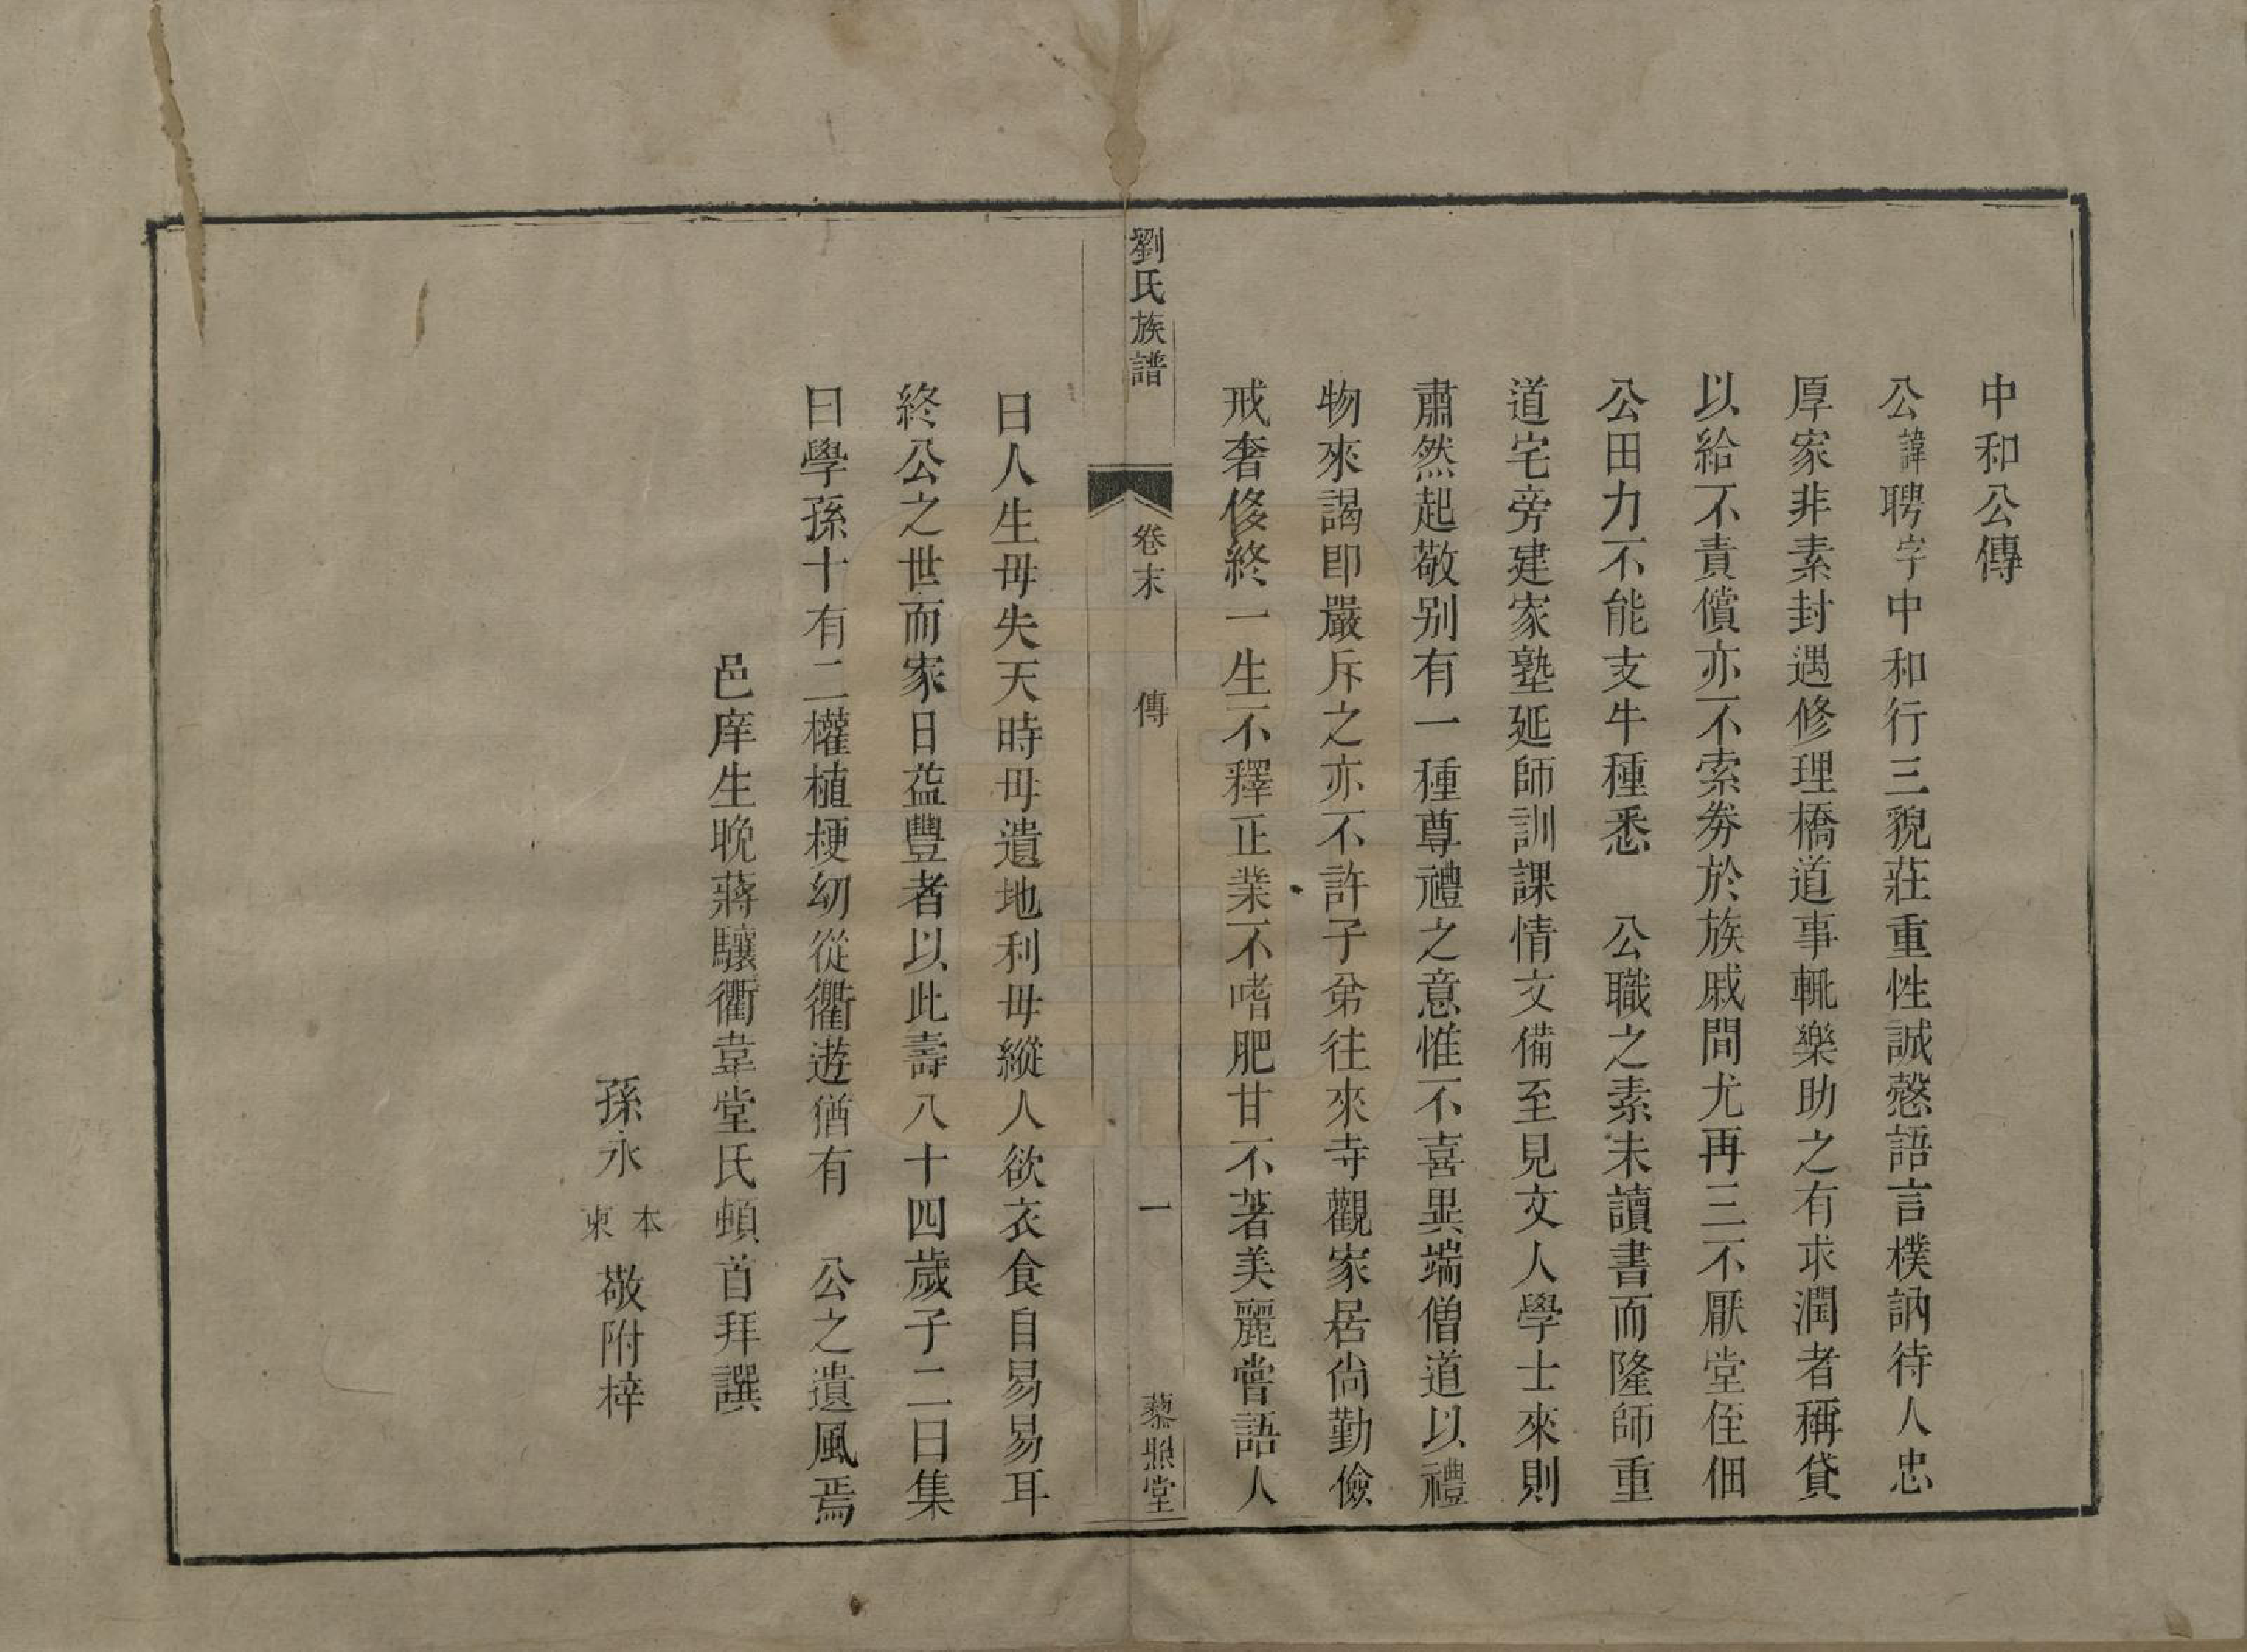 中和公傳
公諱聘字中和行三貌莊重性誠慤語言樸訥待人忠
厚家非素封遇修理橋道事輒樂助之有求潤者稱貸
以給不責償亦不索券於族戚間尤再三不厭堂侄佃
公田力不能支牛種悉　公職之素未讀書而隆師重
道宅旁建家塾延師訓課情文備至見文人學士來則
肅然起敬别有一種尊禮之意惟不喜異端僧道以禮
物來謁卽嚴斥之亦不許子弟往來寺觀家居尙勤儉
戒奢侈終一生不釋正業不嗜肥甘不著美麗嘗語人
劉氏族譜　卷末　傳　一　藜照堂
曰人生毋失天時毋遺地利毋縱人欲衣食自易易耳
終公之世而家日益豐者以此壽八十四歲子二曰集
曰學孫十有二權植梗幼從衢遊猶有　公之遺風焉
邑庠生晚蔣驤衢韋堂氏頓首拜譔
孫永本東敬附梓